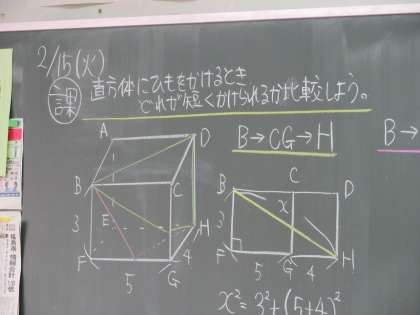 2/15(火)
課 直方体にひもをかけるとき
どれが短くかけられるか比較しよう。
A
D
B
C
3
E
H
F
5
G
4
B→CG→H
B→
C
B
D
x
3
F
5
G
4
H
x²=3²+(5+4)²